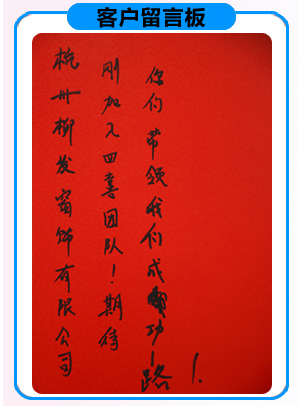 客户留言板
杭州柳发窗饰有限公司
刚加入四喜团队！期待
你们带领我们成功路！